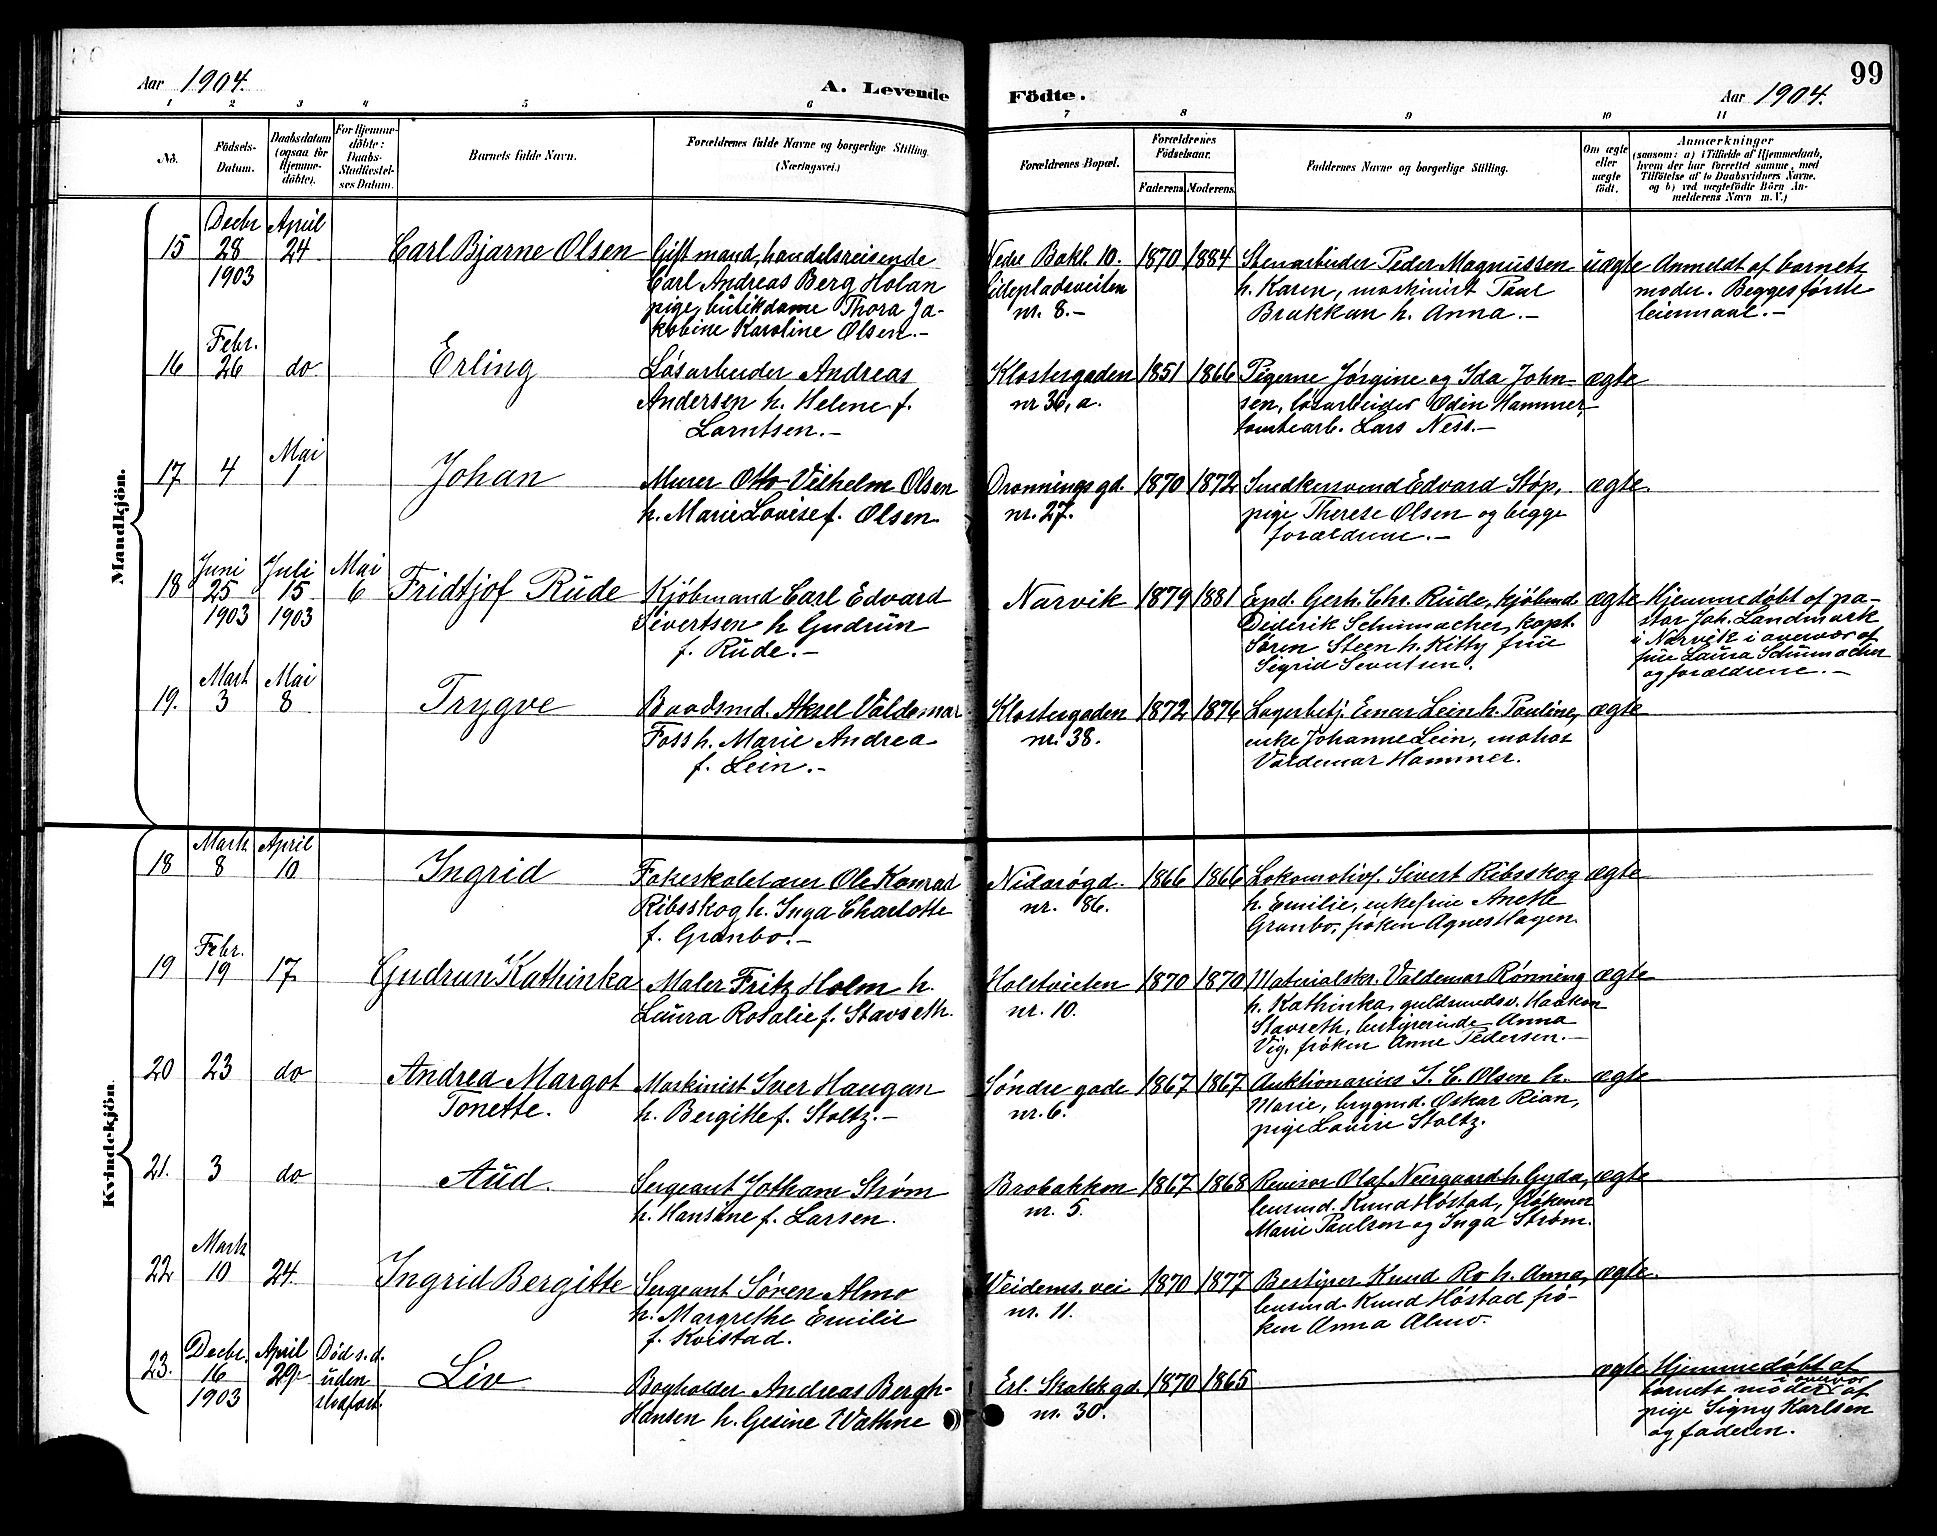 Aar 1904.
A. Levende
Födte.
Aar 1904.
99
1 2 3 4 5 6 7 8 9 10 11
No.
Födsels-
Datum.
Daabsdatum
(ogsaa for
Hjemme-
döbte).
For Hjemme-
döbte:
Daabs-
Stadfæstel-
ses Datum.
Barnets fulde Navn.
Forældrenes fulde Navne og borgerlige Stilling.
(Næringsvei.)
Forældrenes Bopæl.
Forældrenes
Födselsaar.
Faderens. Moderens.
Faddernes Navne og borgerlige Stilling.
Om ægte
eller
uægte
födt.
Anmærkninger
(saasom: a) i Tilfælde af Hjemmedaab,
hvem der har forrettet samme, med
Tilföielse af to Daabsvidners Navne,
og b) ved uægtefödte Börn An-
melderens Navn m. V.)
Mandkjön.
15
Decbr
28
1903
April
24
Carl Bjarne Olsen
Gift mand, handelsreisende
Carl Andreas Berg Holan
pige, butikdame Thora Ja-
kobine Karoline Olsen.-
Nedre Bakl. 10.
Lillepladsveiten
nr. 8.-
1870 1884
Stenarbeider Peder Magnussen
h. Karen, maskinist Paul
Brakkan h. Anna.-
uægte
Anmeldt af barnets
moder. Begges første
leiermaal.-
16
Febr.
26
do
Erling
Løsarbeider Andreas
Andersen h. Helene f.
Lorntsen.-
Klostergaden
nr 36, a.
1851 1866
Pigerne Jørgine og Ida John-
sen, løsarbeider Odin Hammer,
tomtearb. Lars Ness.-
ægte
17
4
Mai
1
Johan
Murer Otto Vilhelm Olsen
h. Marie Lovise f. Olsen
Dronningsgd.
nr. 27.
1870 1872
Snedkersvend Edvard Støp,
pige Therese Olsen og begge
forældrene.-
ægte.
18
Juni
25
1903
Juli
15
1903
Mai
6
Fridtjof Rude
Kjøbmand Carl Edvard
Sivertsen h Gudrun
f. Rude.-
Narvik
1879 1881
Exp. Gerh. Chr. Rude, kjøbmd
Diderik Schumacher, kapt.
Søren Steen h. Kitty frue
Sigrid Sivertsen.
ægte
Hjemmedøbt af pa-
stor Joh. Landmark
i Narvik i overvær af
frue Laura Schumacher
og forældrene.-
19.
Mart
3
Mai
8
Trygve
Baadsmd. Aksel Valdemar
Foss h. Marie Andrea
f. Lein.-
Klostergaden
nr. 38.
1872 1876
Lagerbetj. Einar Lein h. Pauline,
enke Johanne Lein,
Valdemar Hammer.
ægte
Kvindekjön.
18
Marts
8
April
10
Ingrid
Folkeskolelærer Ole Konrad
Ribsskog h. Inga Charlotte
f. Granbo.-
Nidarøgd.
nr. 86.
1866 1866
Lokomotivf. Sivert Ribsskog
h. Emilie, enkefrue Anette
Granbo, frøken Agnes Hagen.
ægte
19
Febr.
19
17
Gudrun Kathinka
Maler Fritz Holm h.
Laura Rosalie f. Stavseth.
Holstveiten
nr. 10.
1870 1870
Materialskr. Valdemar Rønning
h. Kathinka, guldsmedsv. Haakon
Stavseth, bestyrerinde Anna
Vig, frøken Anne Pedersen.-
ægte
20
23
do
Andrea Margot
Tonette.
Maskinist Iver Haugan
h. Bergitte f. Stoltz.-
Søndre gade
nr. 6.
1867 1867
Auktionarius I. C. Olsen h.
Marie, brygmd. Oskar Rian,
pige Lovise Stoltz.
ægte
21.
3
do
Aud.
Sergeant Jotham Strøm
h. Hansine f. Larsen.
Brobakken
nr. 5.
1867 1868
Revisor Olaf Neergaard h. Gyda,
lensmd. Knud Høstad, frøkener
Marie Paulson og Inga Strøm.
ægte
22
Marts
10
24.
Ingrid Bergitte
Sergeant Søren Almo
h. Margrethe Emilie
f. Kvistad.
Weidems. vei
nr. 11.
1870 1877
Bestyrer Knud Ro h. Anna,
lensmd. Knud Høstad frø-
ken Anna Almo.
ægte.
23.
Decbr.
16
1903
April
29.
Død s.d.
uden
stadfæst.
Liv
Bogholder Andreas Bergh-
Hansen h. Gesine Wathne
Erl. Skakkgd
nr. 30.
1870 1865
ægte
Hjemmedøbt af
barnets moder i overvær af
pige Signy Karlsen
og faderen.